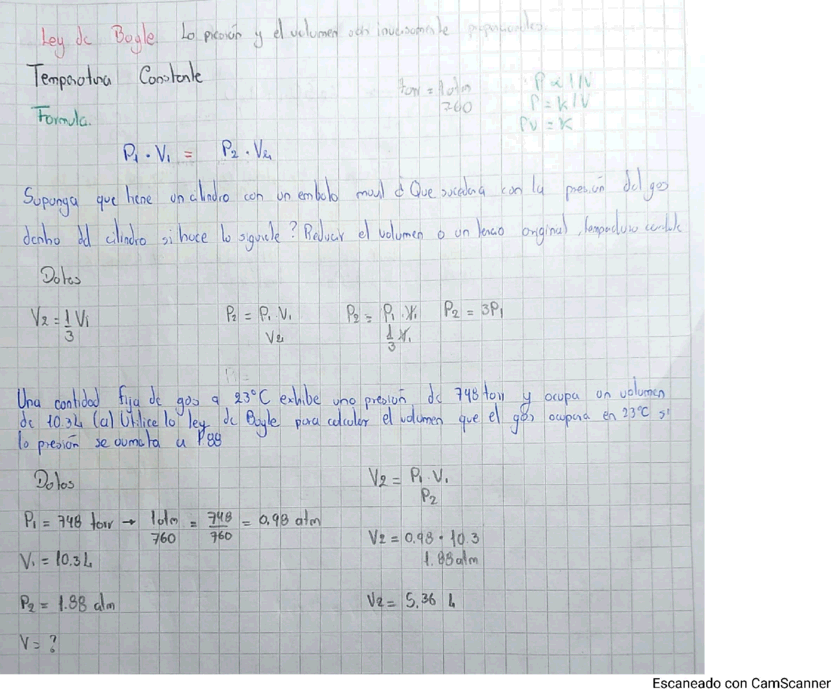 Ley de Boyle La presión y el volumen son inversamente proporcionales.
Temperatura Constante
torr = 1 atm
760
P ∝ 1/V
P = K/V
PV = K
Formula.
P₁ · V₁ = P₂ · V₂
Suponga que tiene un cilindro con un embolo movil ¿ Que sucedera con la presion del gas
dentro del cilindro si hace lo siguiente? Reducir el volumen a un tercio original, temperatura constante
Datos
V₂ = 1/3 V₁
P₂ = P₁ · V₁ / V₂
P₂ = P₁ · V₁ / 1/3 V₁
P₂ = 3P₁
Una cantidad fija de gas a 23°C exhibe una presión de 748 torr y ocupa un volumen
de 10.3L (a) Utilice la ley de Boyle para calcular el volumen que el gas ocupara en 23°C si
la presión se aumenta a 1.88
Datos
P₁ = 748 torr → 1 atm / 760 = 748 / 760 = 0,98 atm
V₁ = 10.3L
P₂ = 1.88 atm
V = ?
V₂ = P₁ · V₁ / P₂
V₂ = 0.98 · 10.3 / 1.88 atm
V₂ = 5,36 L
Escaneado con CamScanner